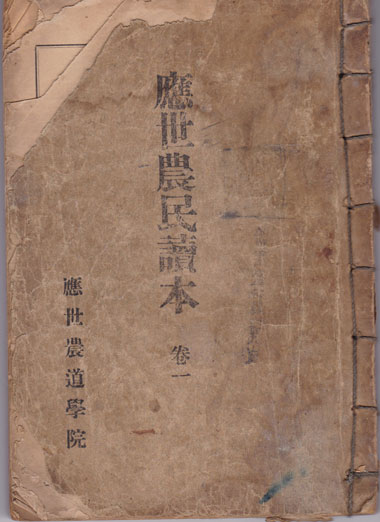 應世農民讀本
卷一
應世農道學院